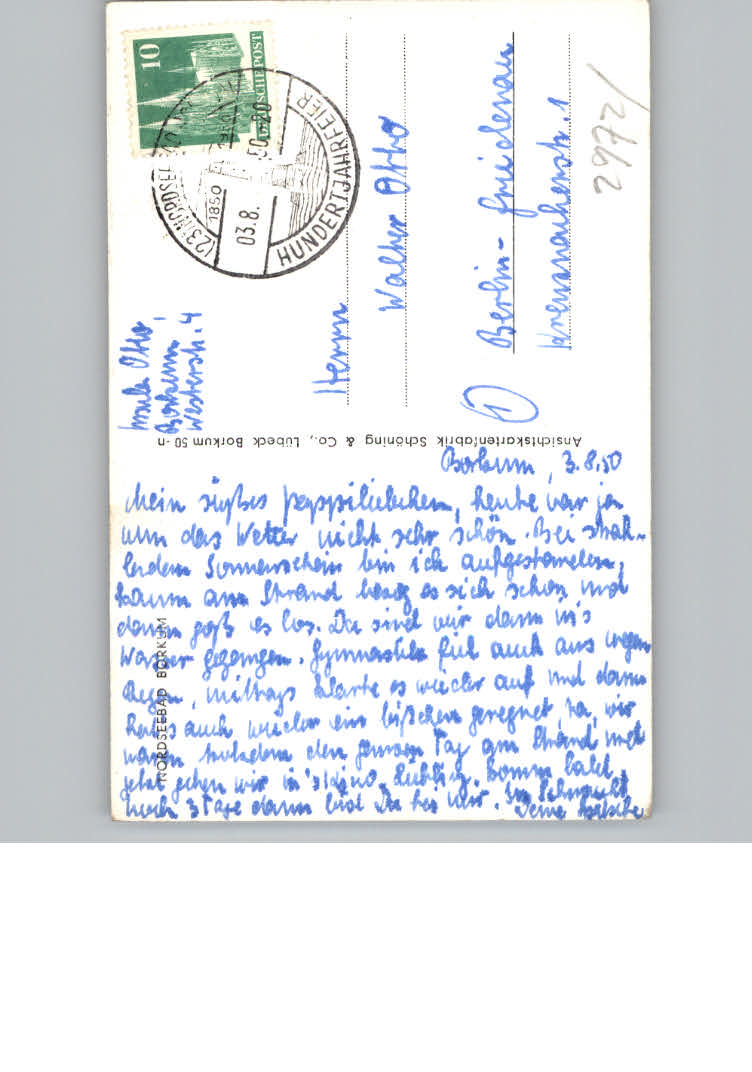 10
DEUTSCHE POST
(23) NORDSEEBAD
1850
03.8.50.-20
HUNDERTJAHRFEIER
Otto,
Borkum
Westerstr. 4
Herrn
Walter Otto
(1) Berlin-Friedenau
Kreuznacherstr. 1
2972/
Ansichtskartenfabrik Schöning & Co., Lübeck Borkum 50 -n
NORDSEEBAD BORKUM
Borkum, 3.8.50
Mein süßes, heute war ja
nun das Wetter nicht sehr schön. Bei strah-
lendem Sonnenschein bin ich aufgestanden,
kaum am Strand bezog es sich schon und
dann goß es los. Da sind wir dann in's
Wasser gegangen. Gymnastik fiel auch aus wegen
Regen, mittags klarte es wieder auf und dann
hat's auch wieder ein bißchen geregnet, na, wir
waren trotzdem den ganzen Tag am Strand und
jetzt gehen wir in's Kino. Liebling, komm bald,
noch 3 Tage dann bist Du bei mir. In Sehnsucht
Deine